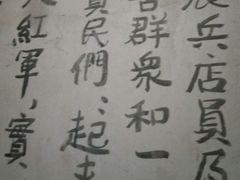 兵店員及
群衆和一
民們：起來
紅軍，實